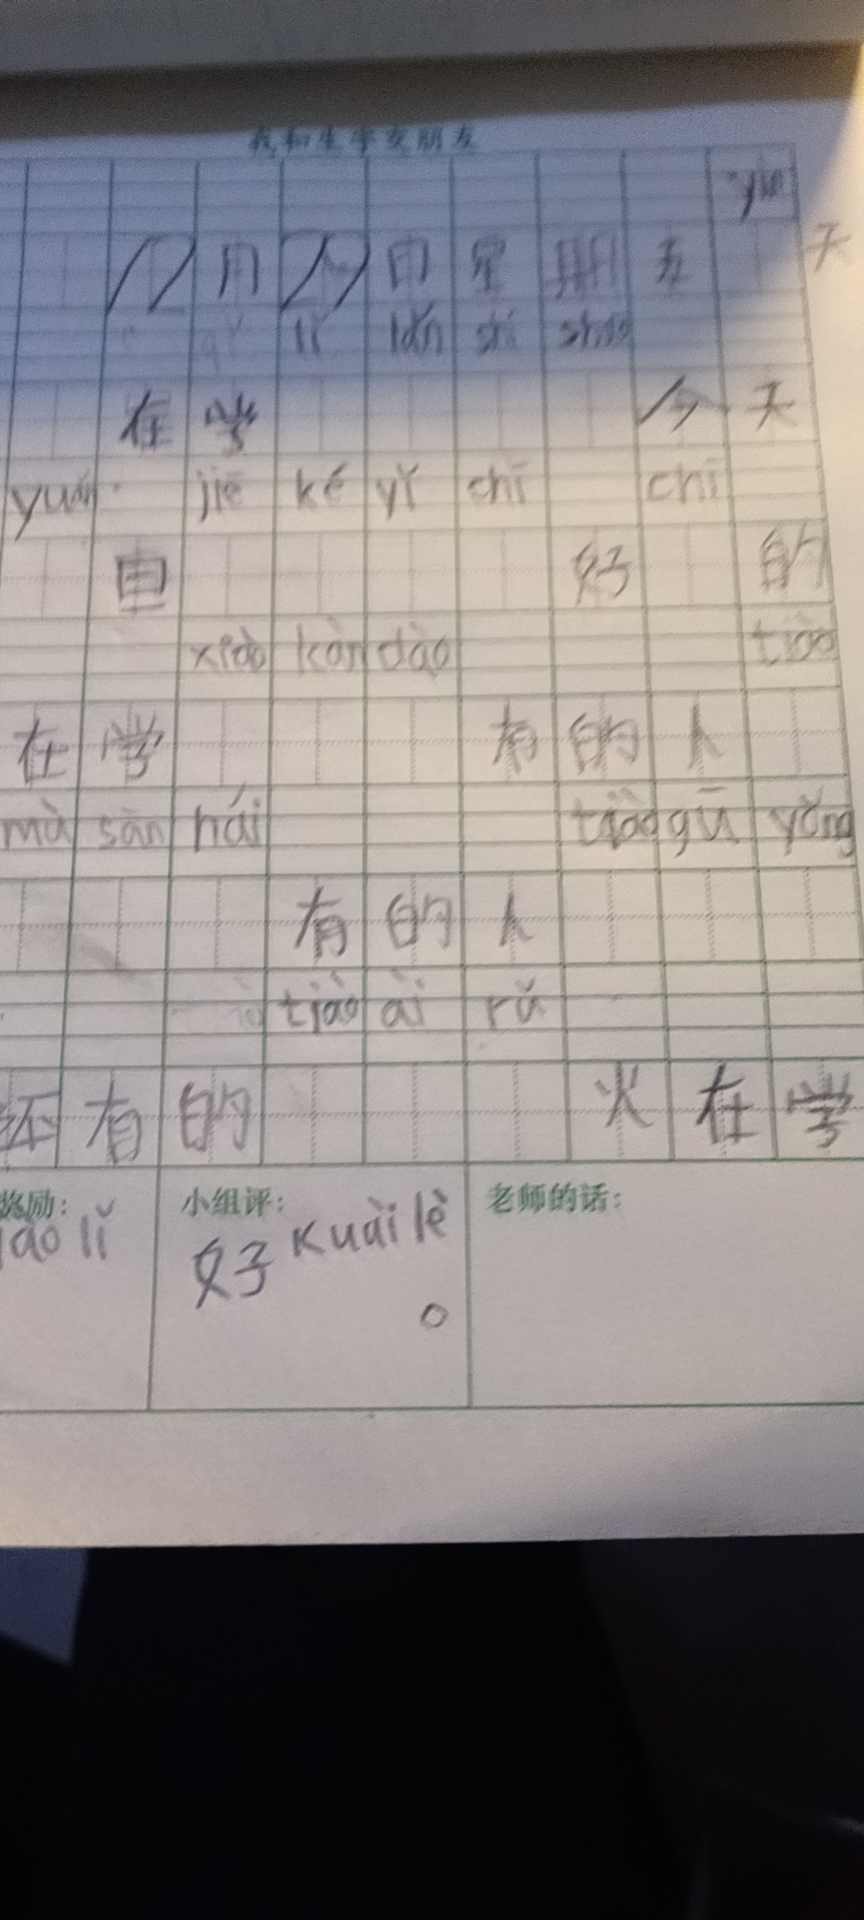 我和生字交朋友
12月29日星期五 yīn 天
lì lǎn shí
在学 今天
yuán jiē kě yǐ chī chī
里 好 的
xiào kàn dào tiào
在学 有的人
mà sān hái tiào gū yǒng
有的人
tiào ài rǔ
还有的 火在学
奖励： 小组评： 老师的话：
lǐ 好 kuài lè
。